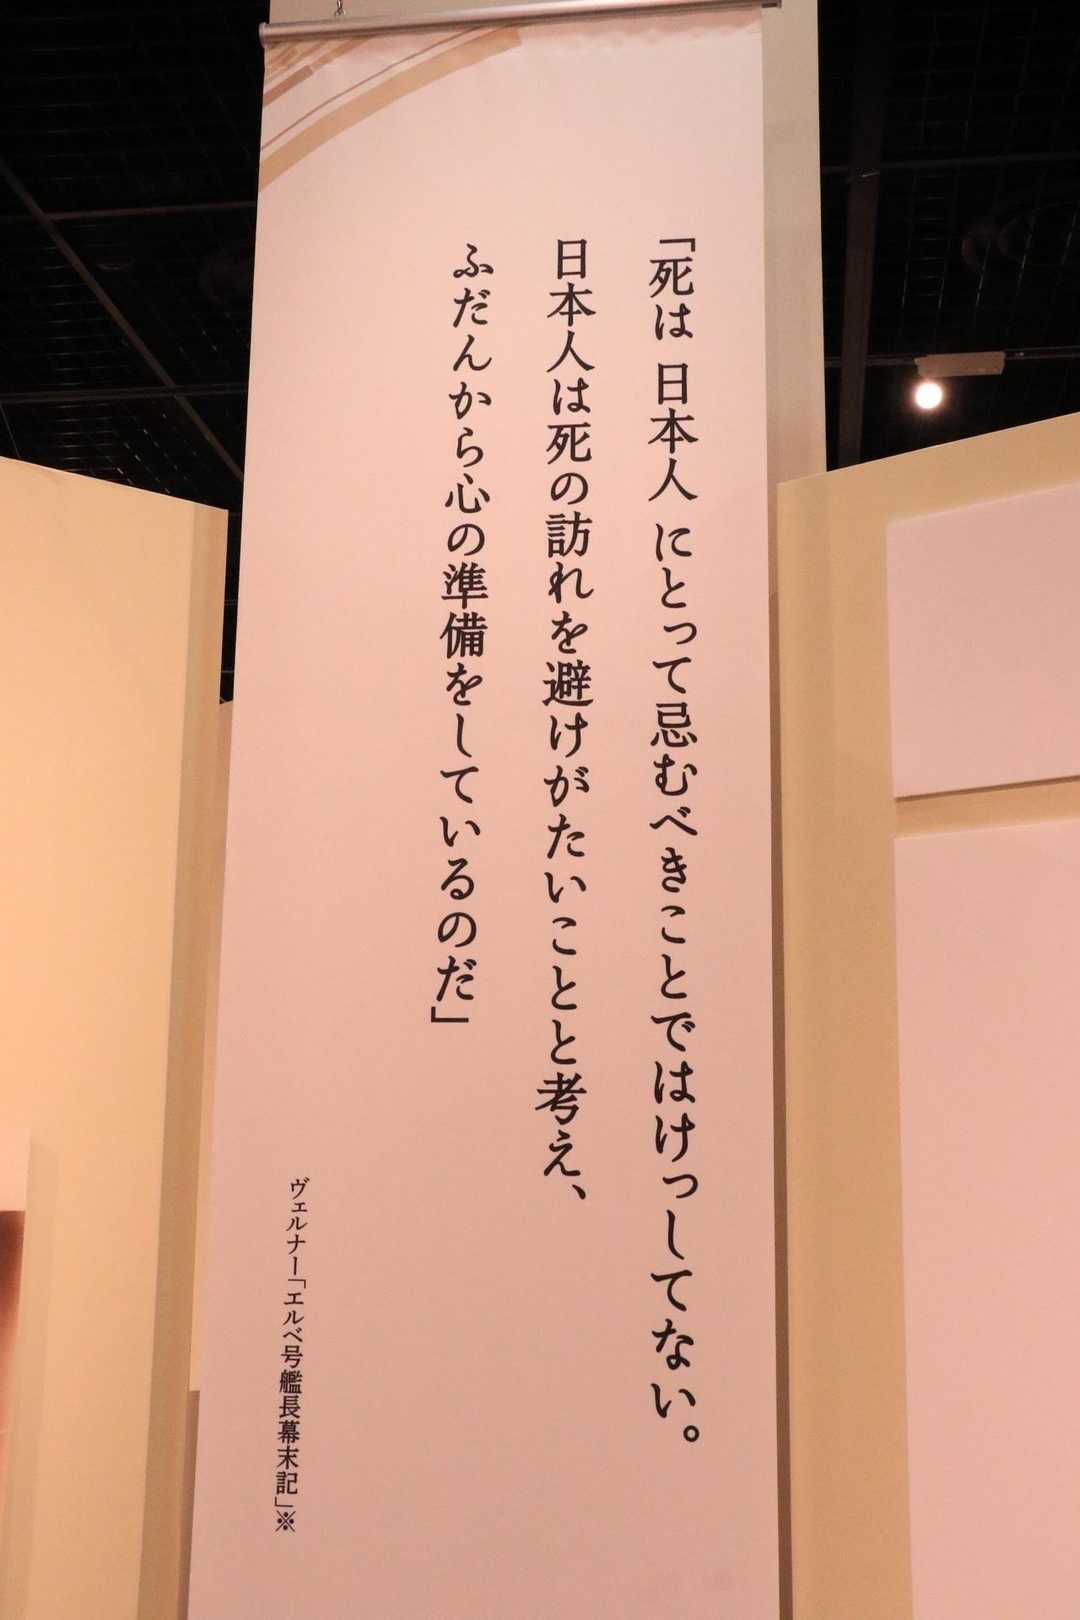 「死は 日本人 にとって忌むべきことではけっしてない。
日本人は死の訪れを避けがたいことと考え、
ふだんから心の準備をしているのだ」
ヴェルナー「エルベ号艦長幕末記」※